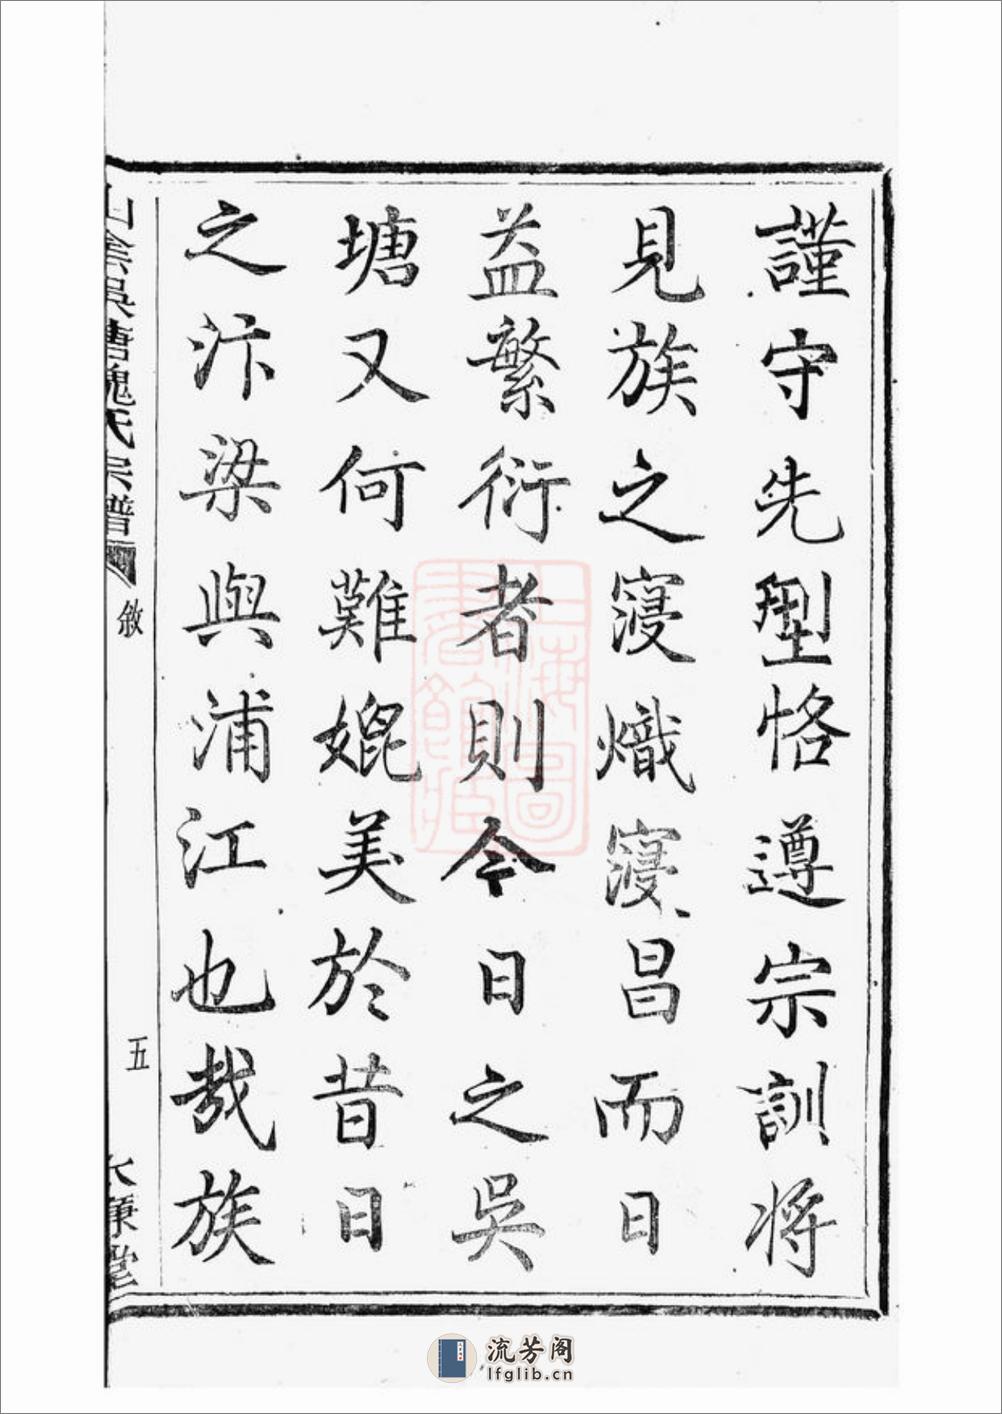 謹守先型恪遵宗訓將
見族之寖熾寖昌而日
益繁衍者則今日之吳
塘又何難媲美於昔日
之汴梁與浦江也哉族
山会吳塘魏氏宗譜
敘
五
上海圖書館藏
流芳阁
lfglib.cn